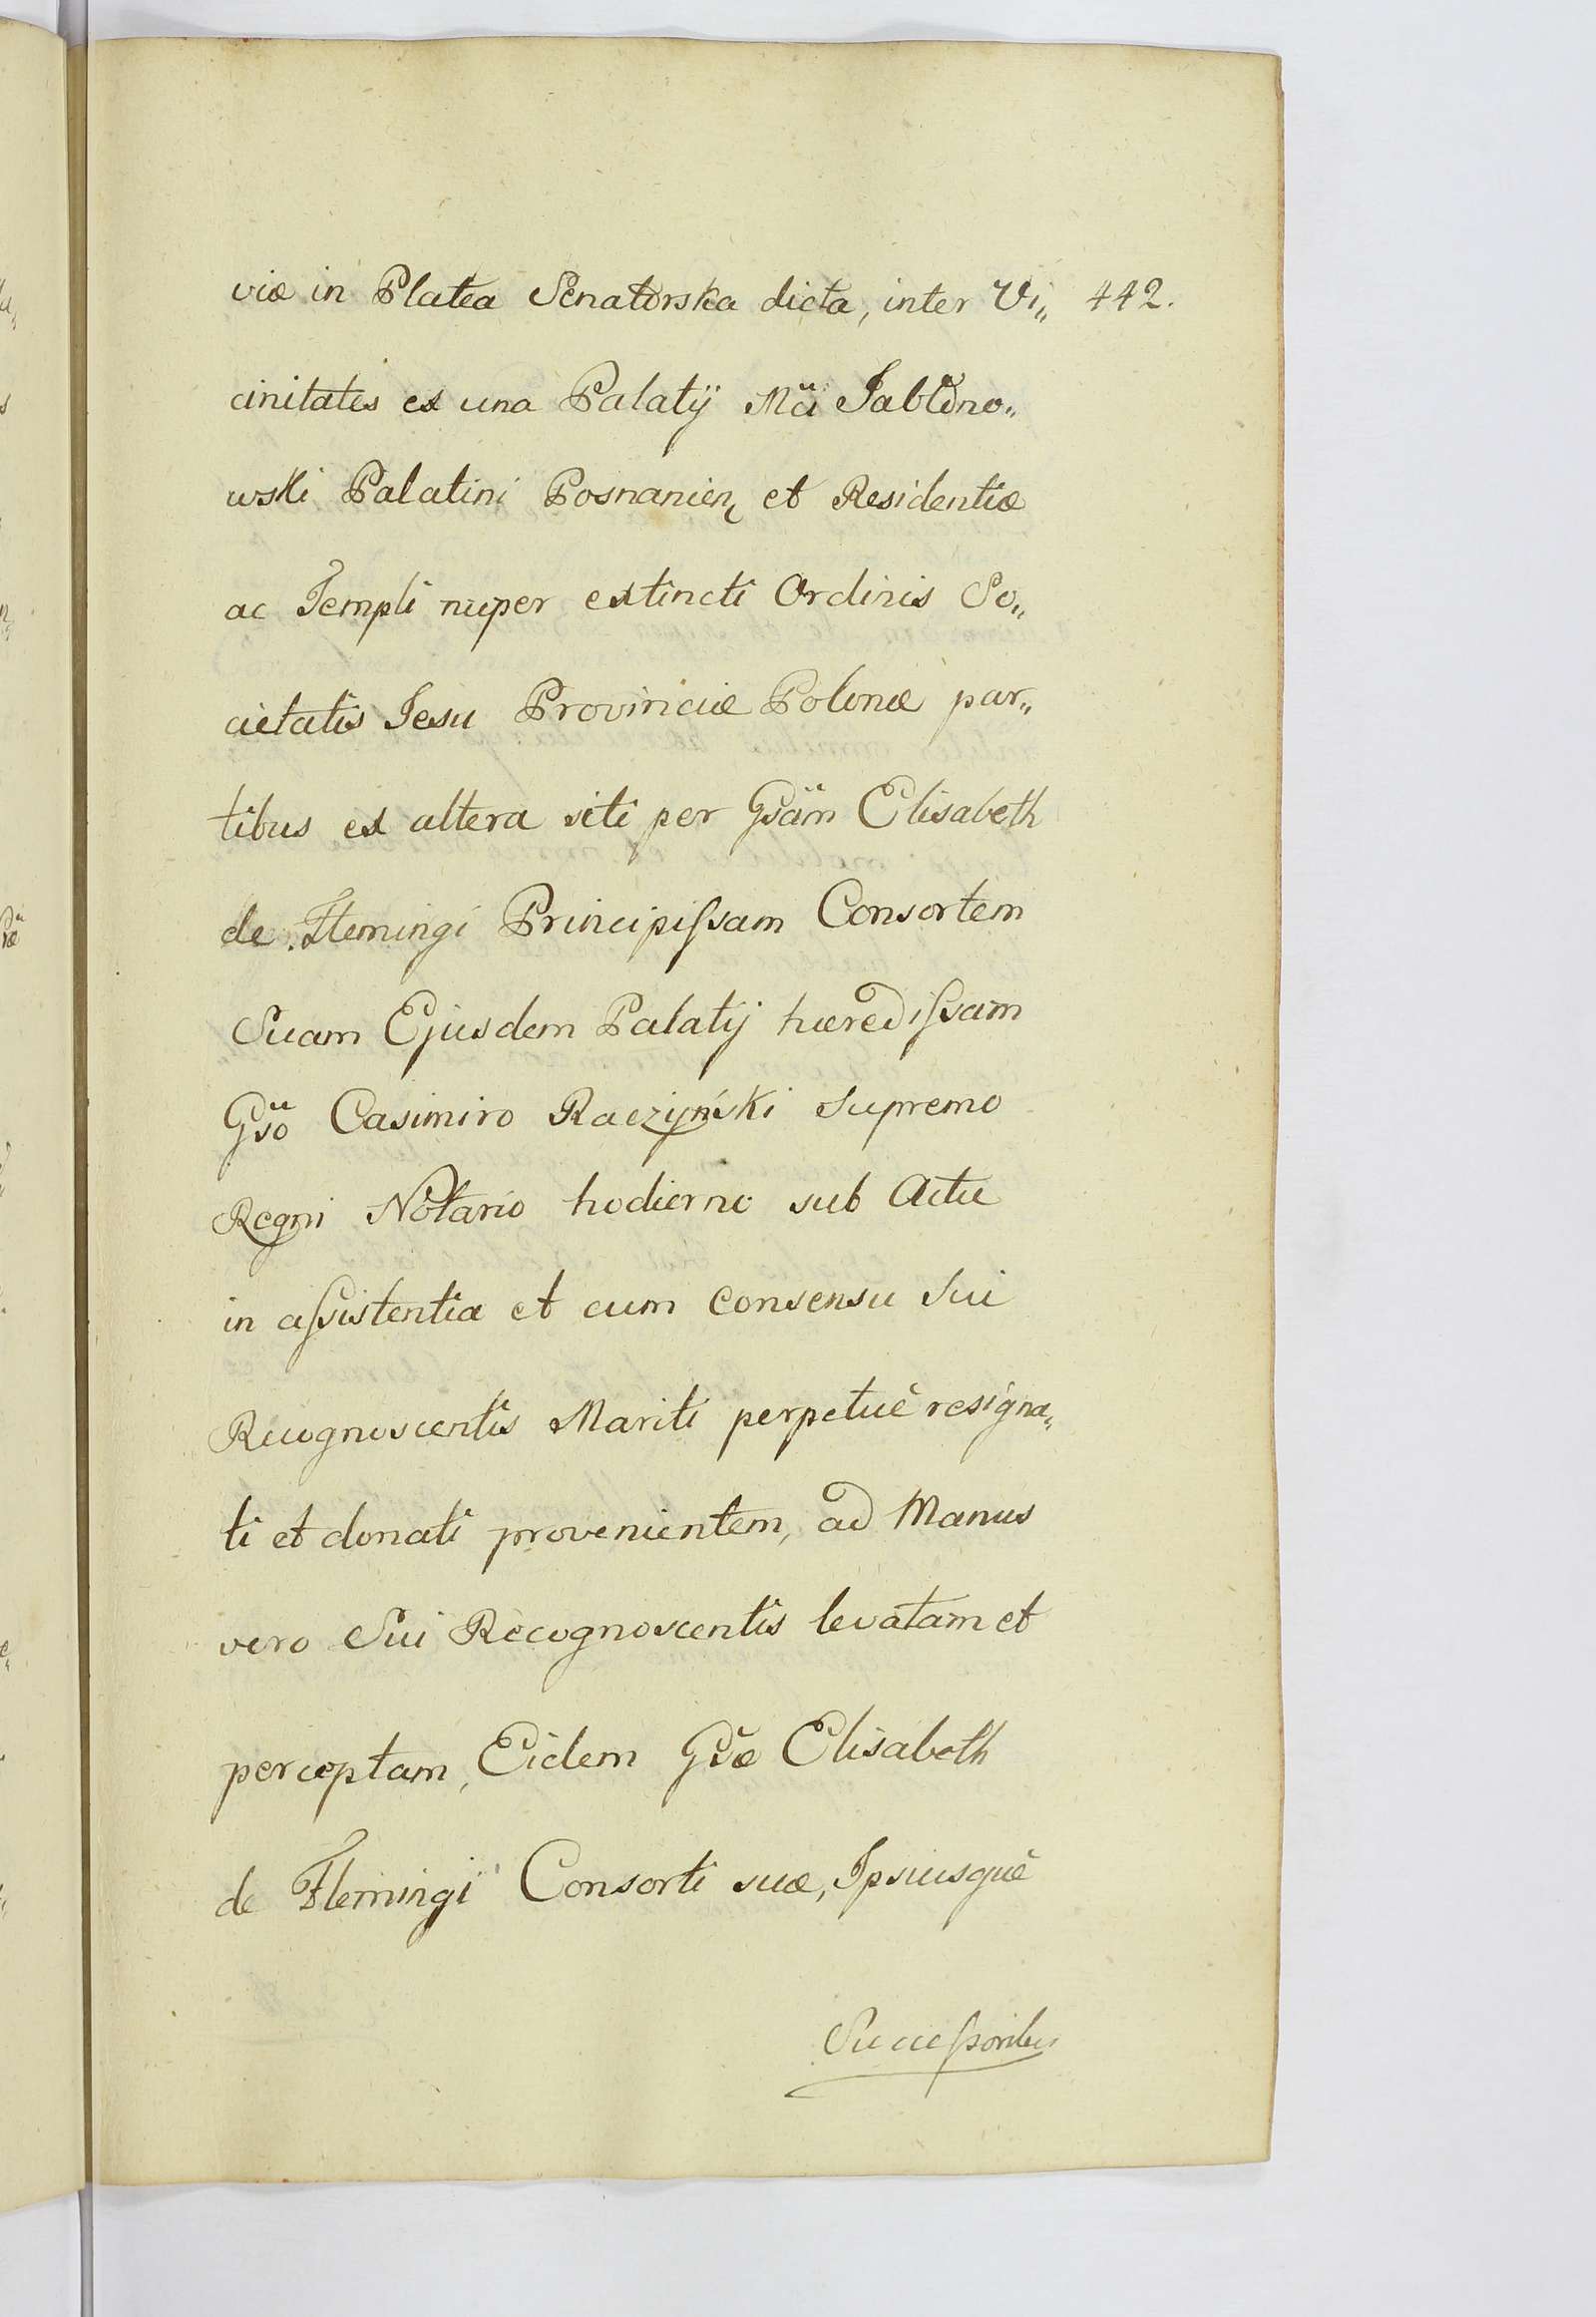 viæ in Platea Senatorska dicta, inter Vi„ 442.
cinitates ex una Palatÿ Mci Jabłono„
wski Palatini Posnanien et Residentiæ
ac Templi nuper extincti Ordinis So„
cietatis Jesu Provinciæ Polonæ par„
tibus ex altera siti per Gsam Elisabeth
de Flemingi Principiſsam Consortem
Suam Ejusdem Palatij hærediſsam
Gso Casimiro Raczyński Supremo
Regni Notario hodierno sub Actu
in aſsistentia et cum consensu Sui
Recognoscentis Mariti perpetuè resigna„
ti et donati provenientem, ad Manus
vero Sui Recognoscentis levatam et
perceptam, Eidem Gsæ Elisabeth
de Flemingi Consorti suæ, Ipsiusquè
Succeſsoribus